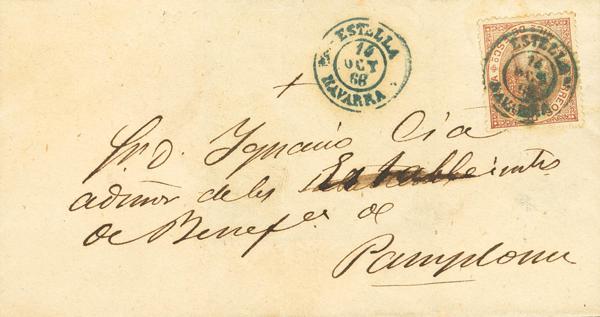 ESTELLA
14
OCT
68
NAVARRA
ESTELLA
14
68
NAVARRA
+
Sr. D. Ignacio Cia
admor de los Establecimtos
de Benefca de
Pamplona